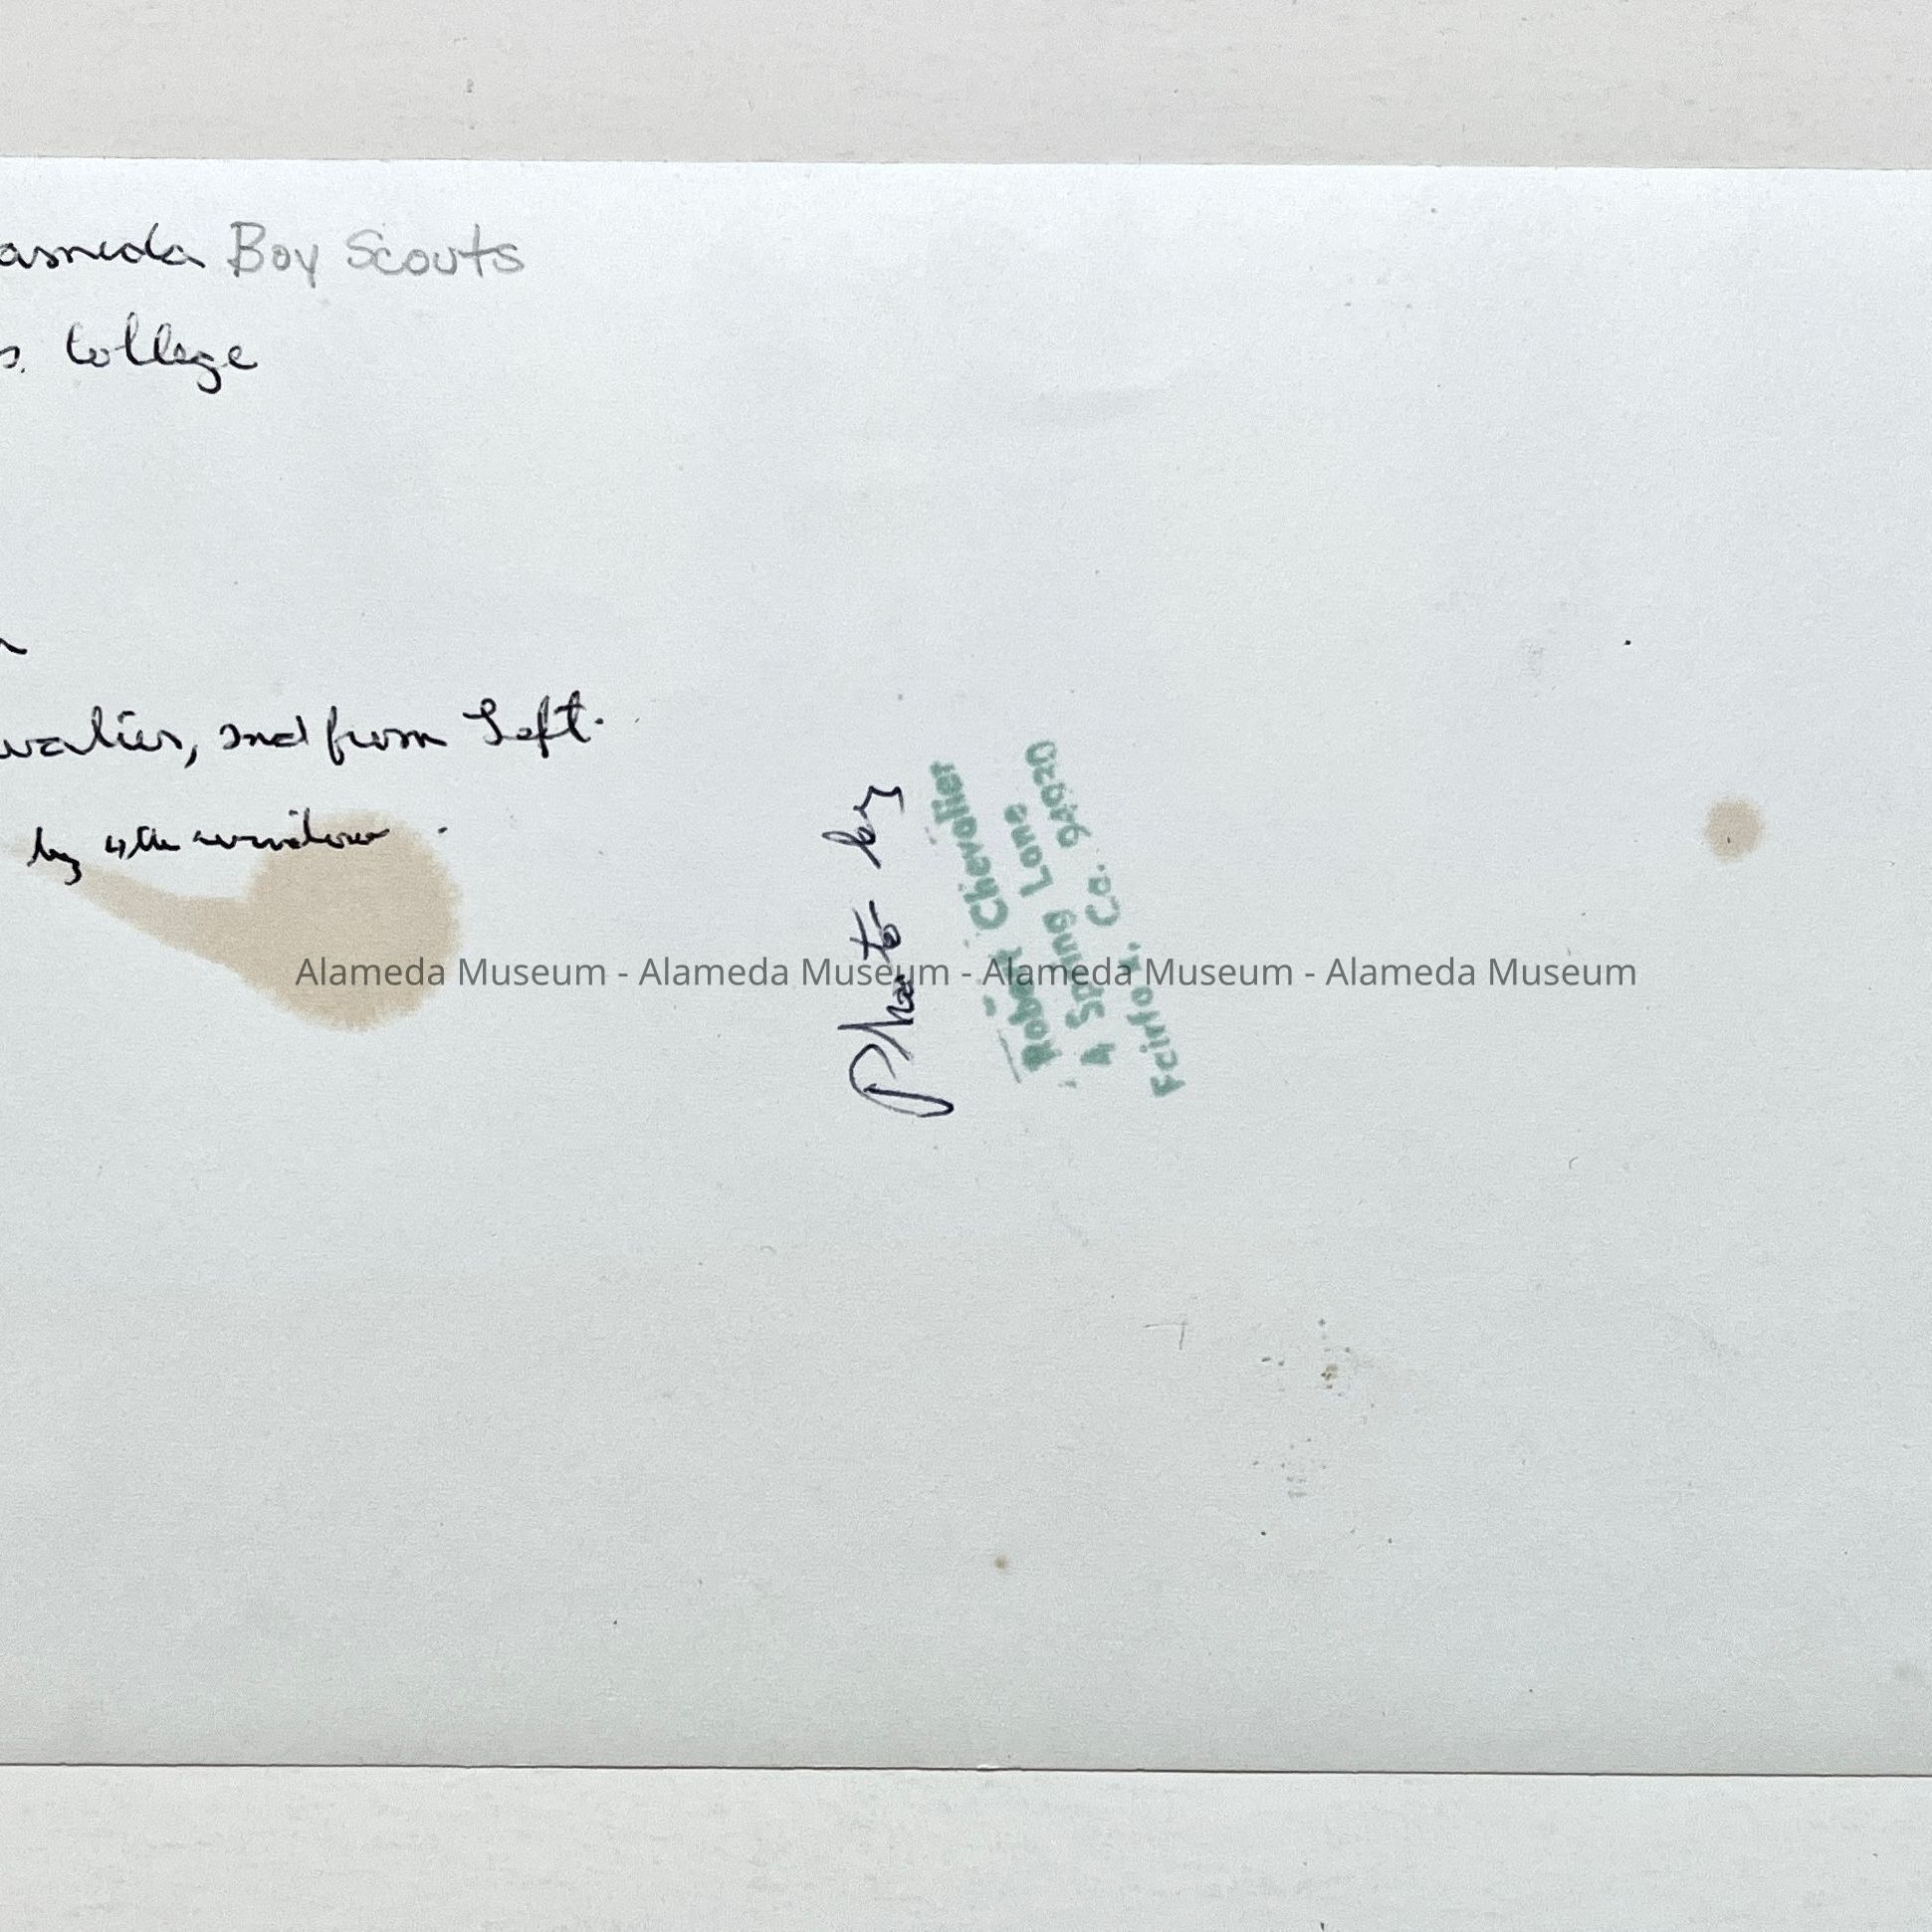 Boy Scouts
s. College
valier, 2nd from Left.
by 4th window.
Photo by
Robert Chevalier
4 Spring Lane
Ca. 94930
Alameda Museum - Alameda Museum - Alameda Museum - Alameda Museum